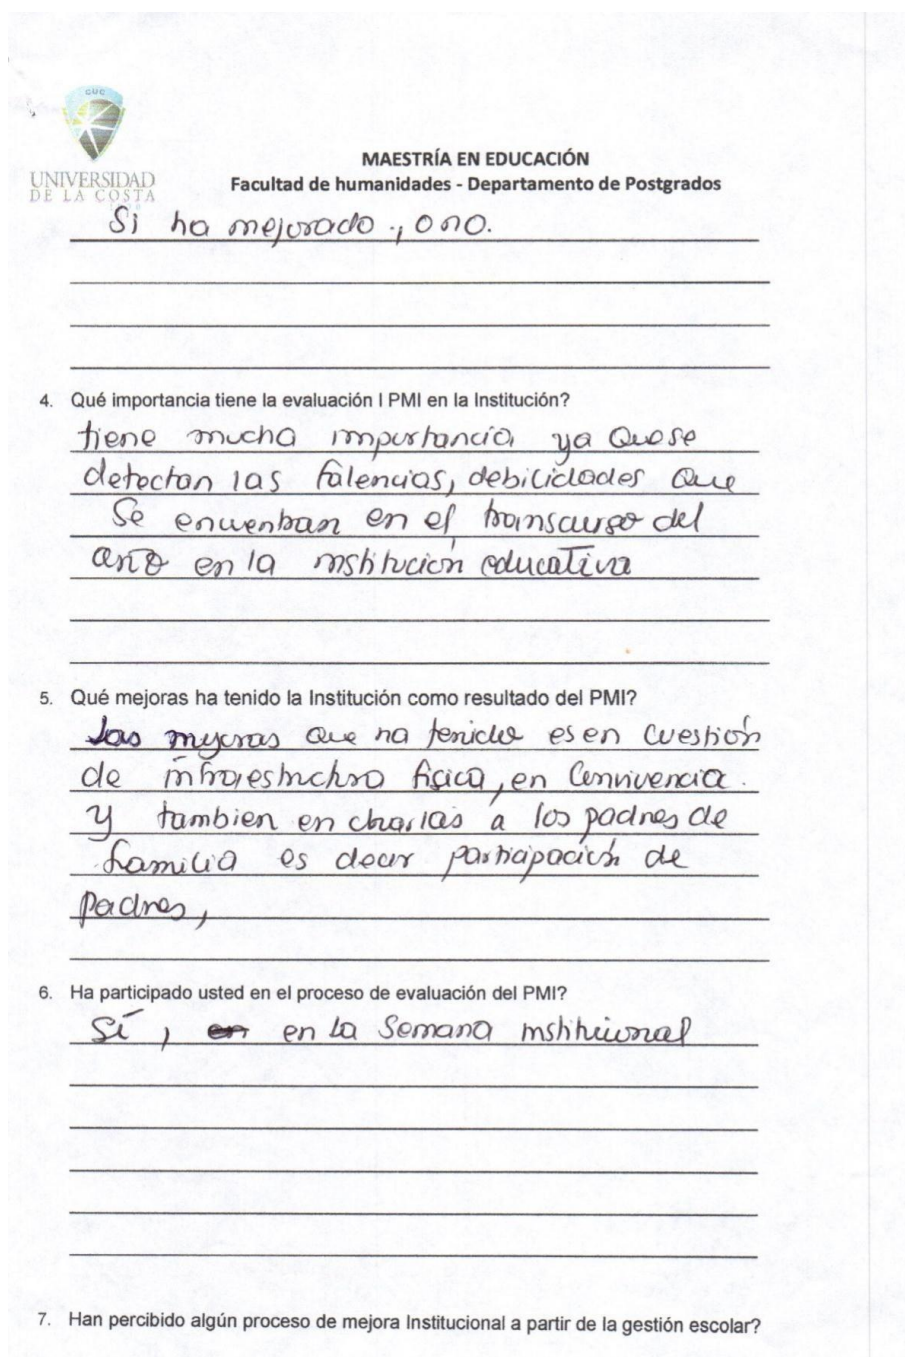 CUC
UNIVERSIDAD
DE LA COSTA
MAESTRÍA EN EDUCACIÓN
Facultad de humanidades - Departamento de Postgrados
Si ha mejorado, o no.
4. Qué importancia tiene la evaluación l PMI en la Institución?
tiene mucha importancia, ya que se
detectan las falencias, debilidades que
se encuentran en el transcurso del
año en la institución educativa
5. Qué mejoras ha tenido la Institución como resultado del PMI?
Las mejoras que ha tenido es en cuestión
de infraestructura física, en convivencia.
y tambien en charlas a los padres de
familia es decir participación de
padres,
6. Ha participado usted en el proceso de evaluación del PMI?
Sí, en en la Semana institucional
7. Han percibido algún proceso de mejora Institucional a partir de la gestión escolar?